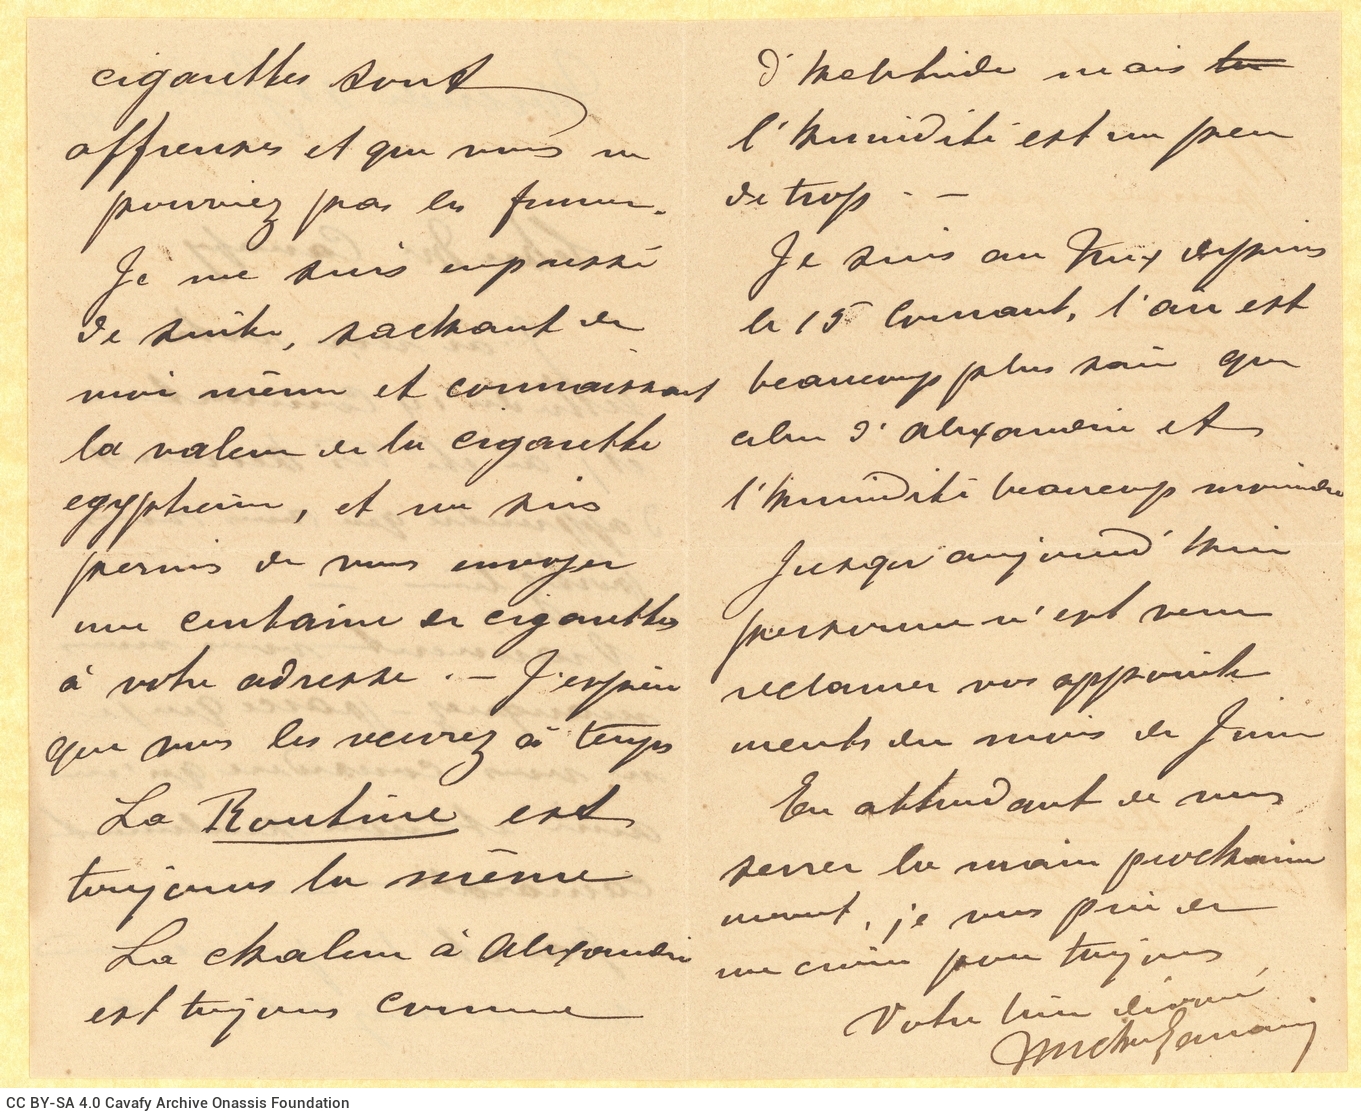 cigarettes sont
affreuses et que vous ne
pourriez pas les fumer.
Je me suis empressé
de suite, sachant de
moi même et connaissant
la valeur de la cigarette
egyptienne, et me suis
permis de vous envoyer
une centaine de cigarettes
à votre adresse. — J'espère
que vous les recevrez à temps
La Routine est
toujours la même
La chaleur à Alexandrie
est toujours comme
d'habitude mais
l'humidité est un peu
de trop. —
Je suis au depuis
le 15 Courant, l'air est
beaucoup plus sain que
celui d'Alexandrie et
l'humidité beaucoup moindre
Jusqu'aujourd'hui
personne n'est venu
réclamer vos appointe
ments du mois de Juin
En attendant de vous
serrer la main prochaine
ment, je vous prie de
me croire pour toujours
Votre bien dévoué
CC BY-SA 4.0 Cavafy Archive Onassis Foundation